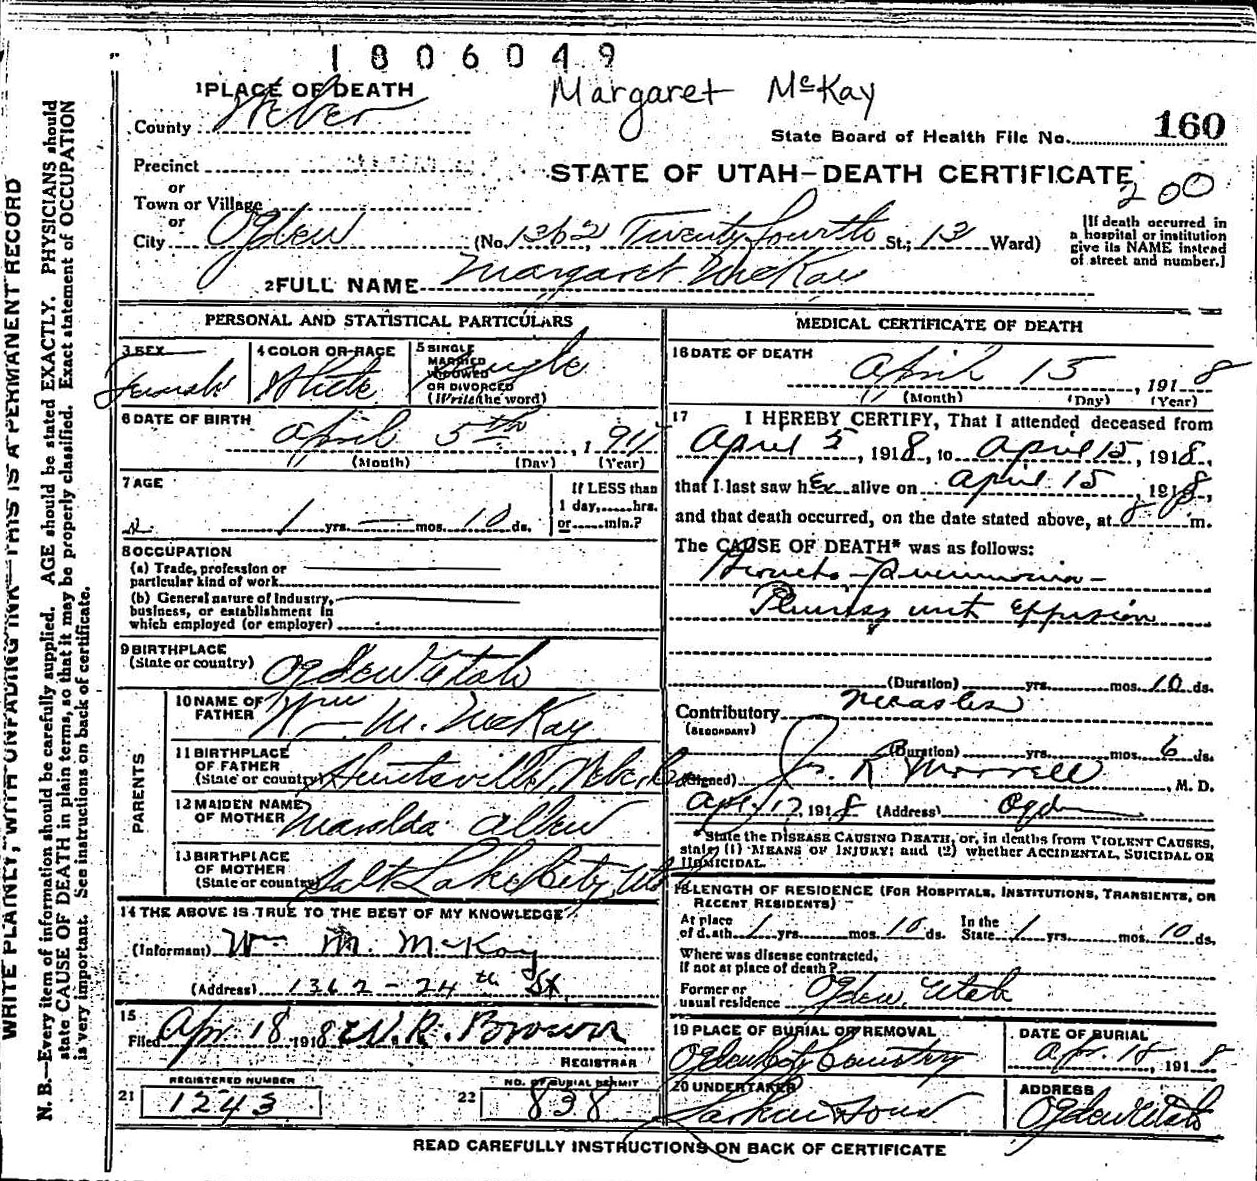 1806049
Margaret McKay
1 PLACE OF DEATH
County Weber
State Board of Health File No. 160
Precinct
STATE OF UTAH—DEATH CERTIFICATE
200
or
Town or Village
or
City Ogden (No. 1362 Twenty fourth St.; 13 Ward)
[If death occurred in
a hospital or institution
give its NAME instead
of street and number.]
2 FULL NAME Margaret McKay
PERSONAL AND STATISTICAL PARTICULARS
3 SEX
Female
4 COLOR OR RACE
White
5 SINGLE
MARRIED
WIDOWED
OR DIVORCED
(Write the word)
Single
6 DATE OF BIRTH
April 5th, 1917
(Month) (Day) (Year)
7 AGE
1 yrs. — mos. 10 ds.
If LESS than
1 day, hrs.
or min.?
8 OCCUPATION
(a) Trade, profession or
particular kind of work
(b) General nature of Industry,
business, or establishment in
which employed (or employer)
9 BIRTHPLACE
(State or country) Ogden Utah
PARENTS
10 NAME OF
FATHER Wm M. McKay
11 BIRTHPLACE
OF FATHER
(State or country) Huntsville, Weber Co
12 MAIDEN NAME
OF MOTHER
13 BIRTHPLACE
OF MOTHER
(State or country) Salt Lake City, Utah
14 THE ABOVE IS TRUE TO THE BEST OF MY KNOWLEDGE
(Informant) Wm M. McKay
(Address) 1362 - 24th St
15
Filed Apr 18, 1918 W. R. Brown
REGISTRAR
21 REGISTERED NUMBER
1243
22 NO. OF BURIAL PERMIT
838
MEDICAL CERTIFICATE OF DEATH
16 DATE OF DEATH
April 15, 1918
(Month) (Day) (Year)
17 I HEREBY CERTIFY, That I attended deceased from
April 5, 1918, to April 15, 1918,
that I last saw her alive on April 15, 1918,
and that death occurred, on the date stated above, at 8 P m.
The CAUSE OF DEATH* was as follows:
Broncho-Pneumonia—
Pleurisy with effusion
(Duration) yrs. mos. 10 ds.
Contributory Measles
(SECONDARY)
(Duration) yrs. mos. 6 ds.
(Signed) Jos. R Morrell, M. D.
Apr 17, 1918 (Address) Ogden
*State the DISEASE CAUSING DEATH, or, in deaths from VIOLENT CAUSES,
state (1) MEANS OF INJURY; and (2) whether ACCIDENTAL, SUICIDAL OR
HOMICIDAL.
18 LENGTH OF RESIDENCE (FOR HOSPITALS, INSTITUTIONS, TRANSIENTS, OR
RECENT RESIDENTS)
At place
of death 1 yrs. mos. 10 ds. In the
State 1 yrs. mos. 10 ds.
Where was disease contracted,
if not at place of death?
Former or
usual residence Ogden, Utah
19 PLACE OF BURIAL OR REMOVAL
Ogden City Cemetery
DATE OF BURIAL
Apr. 18, 1918
20 UNDERTAKER
Larkin & Sons
ADDRESS
Ogden Utah
READ CAREFULLY INSTRUCTIONS ON BACK OF CERTIFICATE
WRITE PLAINLY, WITH UNFADING INK—THIS IS A PERMANENT RECORD
N. B.—Every item of information should be carefully supplied. AGE should be stated EXACTLY. PHYSICIANS should
state CAUSE OF DEATH in plain terms, so that it may be properly classified. Exact statement of OCCUPATION
is very important. See instructions on back of certificate.